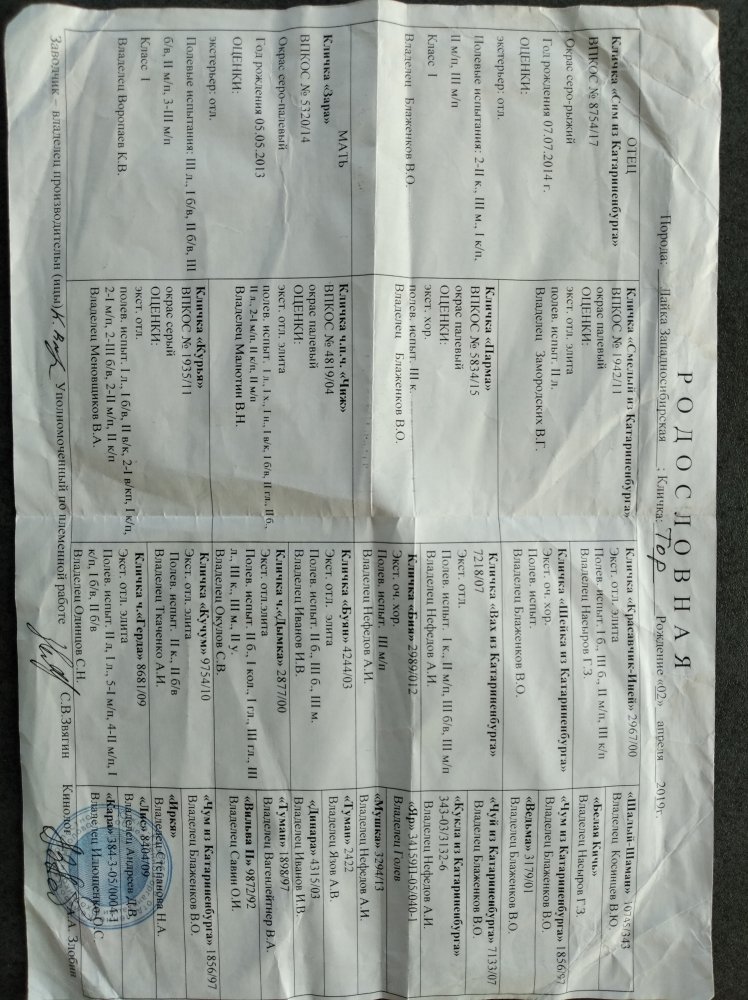 РОДОСЛОВНАЯ
Порода: Лайка Западносибирская ; Кличка: Тор Рождение «02» апреля 2019г.
ОТЕЦ
Кличка «Сим из Катариненбурга»
ВПКОС № 8754/17
Окрас серо-рыжий
Год рождения 07.07.2014 г.
ОЦЕНКИ:
экстерьер: отл.
Полевые испытания: 2-II к., III м., I к/п,
II м/п, III м/п
Класс I
Владелец Блаженков В.О.
МАТЬ
Кличка «Зара»
ВПКОС № 5320/14
Окрас серо-палевый
Год рождения 05.05.2013
ОЦЕНКИ:
экстерьер: отл.
Полевые испытания: III л., I б/в, II б/в, III
б/в, II м/п, 3-III м/п
Класс I
Владелец Воропаев К.В.
Кличка «Смелый из Катариненбурга»
ВПКОС № 1942/11
окрас палевый
ОЦЕНКИ:
экст. отл. элита
полев. испыт. II л.
Владелец Замородских В.Г.
Кличка «Парма»
ВПКОС № 5834/15
окрас палевый
ОЦЕНКИ:
экст. хор.
полев. испыт. III к.
Владелец Блаженков В.О.
Кличка ч.п.ч. «Чиж»
ВПКОС № 4819/04
окрас палевый
ОЦЕНКИ:
экст. отл. элита
полев. испыт. I л., I х., I н., I в/к, I б/в, II гл., II б.,
II л., 2-I м/п, II к/п, II м/п
Владелец Малютин В.Н.
Кличка «Курья»
ВПКОС № 1935/11
окрас серый
ОЦЕНКИ:
экст. отл.
полев. испыт. I л., I б/в, II в/к, 2-I в/кп, I к/п,
2-I м/п, 2-III б/в, 2-II м/п, II к/п
Владелец Меновщиков В.А.
Кличка «Красавчик-Иней» 2967/00
Экст. отл. элита
Полев. испыт. I б., III б., II м/п, III к/п
Владелец Насыров Г.З.
Кличка «Шейка из Катариненбурга»
Экст. оч. хор.
Полев. испыт.
Владелец Блаженков В.О.
Кличка «Вах из Катариненбурга»
7218/07
Экст. отл.
Полев. испыт. I к., II м/п, III б/в, III м/п
Владелец Нефедов А.И.
Кличка «Бия» 2089/012
Экст. оч. хор.
Полев. испыт. III м/п
Владелец Нефедов А.И.
Кличка «Буян» 4244/03
Экст. отл. элита
Полев. испыт. II б., III б., III м.
Владелец Иванов И.В.
Кличка ч.«Дымка» 2877/00
Экст. отл.элита
Полев. испыт. II б., I кол., I гл., III гл., III
л., III к., III м., II у.
Владелец Окулов С.В.
Кличка «Кучум» 9754/10
Экст. отл. элита
Полев. испыт. II к., II б/в
Владелец Ткаченко А.И.
Кличка ч.«Герда» 8681/09
Экст. отл. элита
Полев. испыт. II л, I л., 5-I м/п, 4-II м/п, I
к/п, I б/в, II б/в
Владелец Одинцов С.Н.
«Шалын-Шаман» 10745/343
Владелец Косинцев В.Ю.
«Белая Кичь»
Владелец Насыров Г.З.
«Чум из Катариненбурга» 1856/97
Владелец Блаженков В.О.
«Ведьма» 3179/01
Владелец Блаженков В.О.
«Чуй из Катариненбурга» 7133/07
Владелец Блаженков В.О.
«Кукла из Катариненбурга»
343-03/3132-6
Владелец Нефедов А.И.
«Яр» 3415911-05/040-1
Владелец Голев
«Мушка» 3294/13
Владелец Нефедов А.И.
«Туман» 2422
Владелец Язов А.В.
«Динара» 4315/03
Владелец Иванов И.В.
«Туман» 1898/97
Владелец Вагенлейтнер В.А.
«Вильва II» 9872/92
Владелец Савин О.И.
«Чум из Катариненбурга» 1856/97
Владелец Блаженков В.О.
«Ирея»
Владелец Степанова Н.А.
«Лис» 8404/09
Владелец Андреев Д.В.
«Кара» 384-3-05/0004-1
Владелец Илющенко О.С.
Заводчик – владелец производительн (ицы) К. Вор Уполномоченный по племенной работе С.В.Звягин Кинолог А.А. Злобин